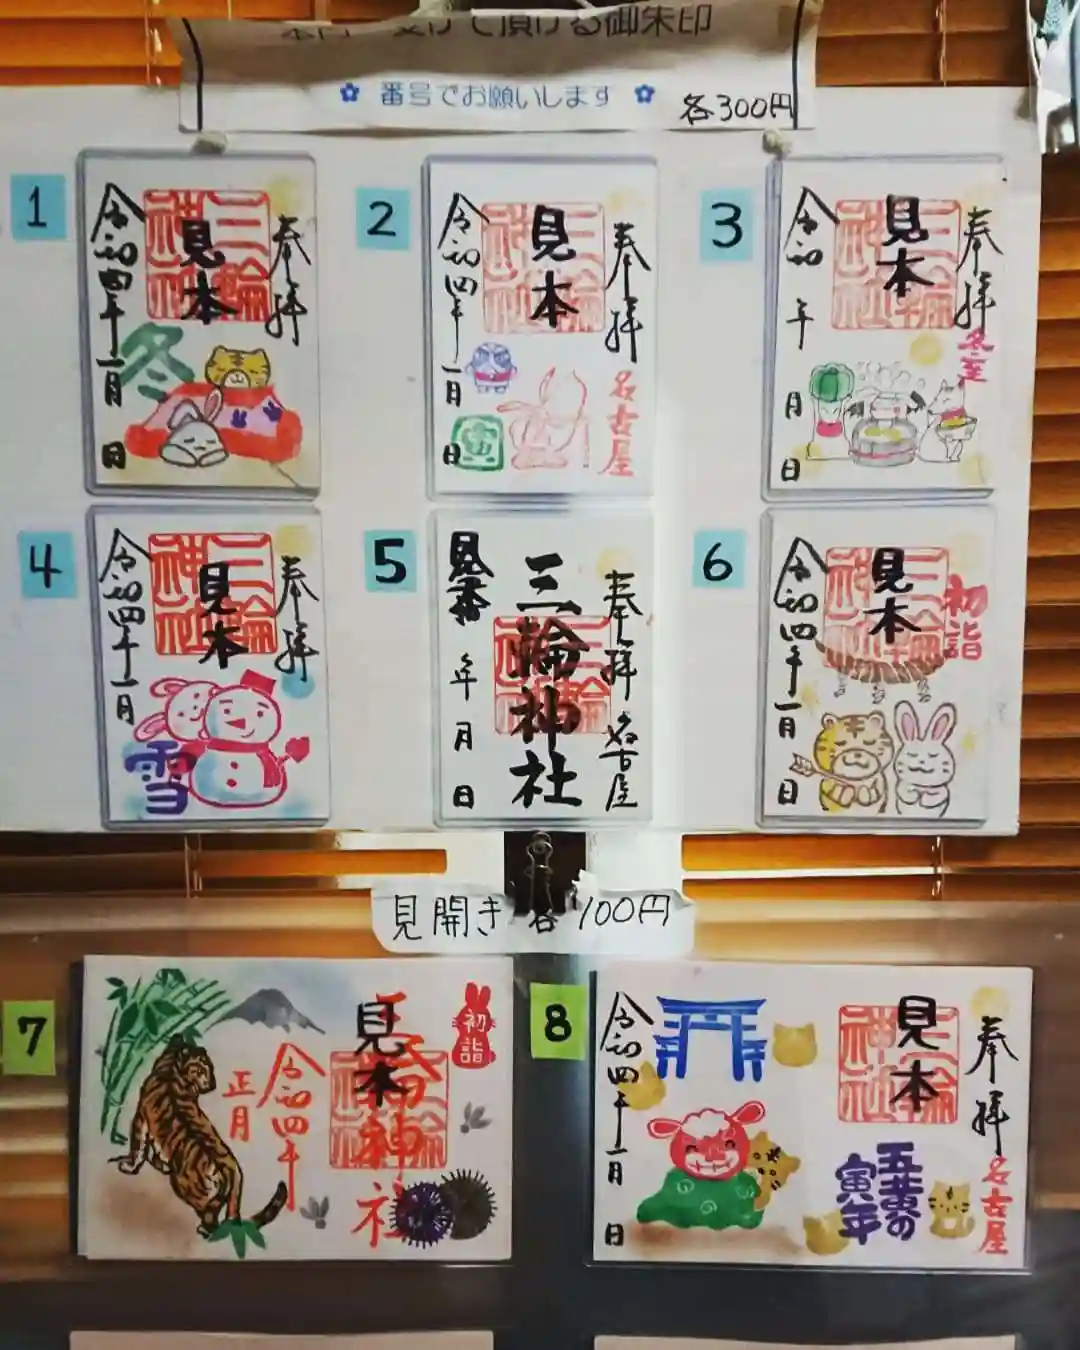 本日 受けて頂ける御朱印
番号でお願いします
各300円
1
奉拝
三輪神社
見本
令和四年一月 日
冬
2
奉拝
三輪神社
見本
令和四年一月 日
名古屋
3
奉拝
三輪神社
見本
令和 年 月 日
冬至
4
奉拝
三輪神社
見本
令和四年一月
雪
5
奉拝 名古屋
三輪神社
見本
年 月 日
6
初詣
三輪神社
見本
令和四年一月 日
見開き 各 100円
7
初詣
三輪神社
見本
令和四年
正月
8
奉拝
名古屋
三輪神社
見本
五黄の
寅年
令和四年一月 日